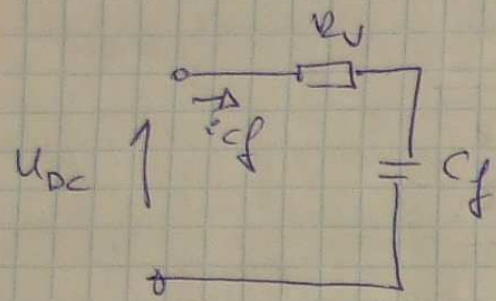 Rv
icf
UDC
Cf